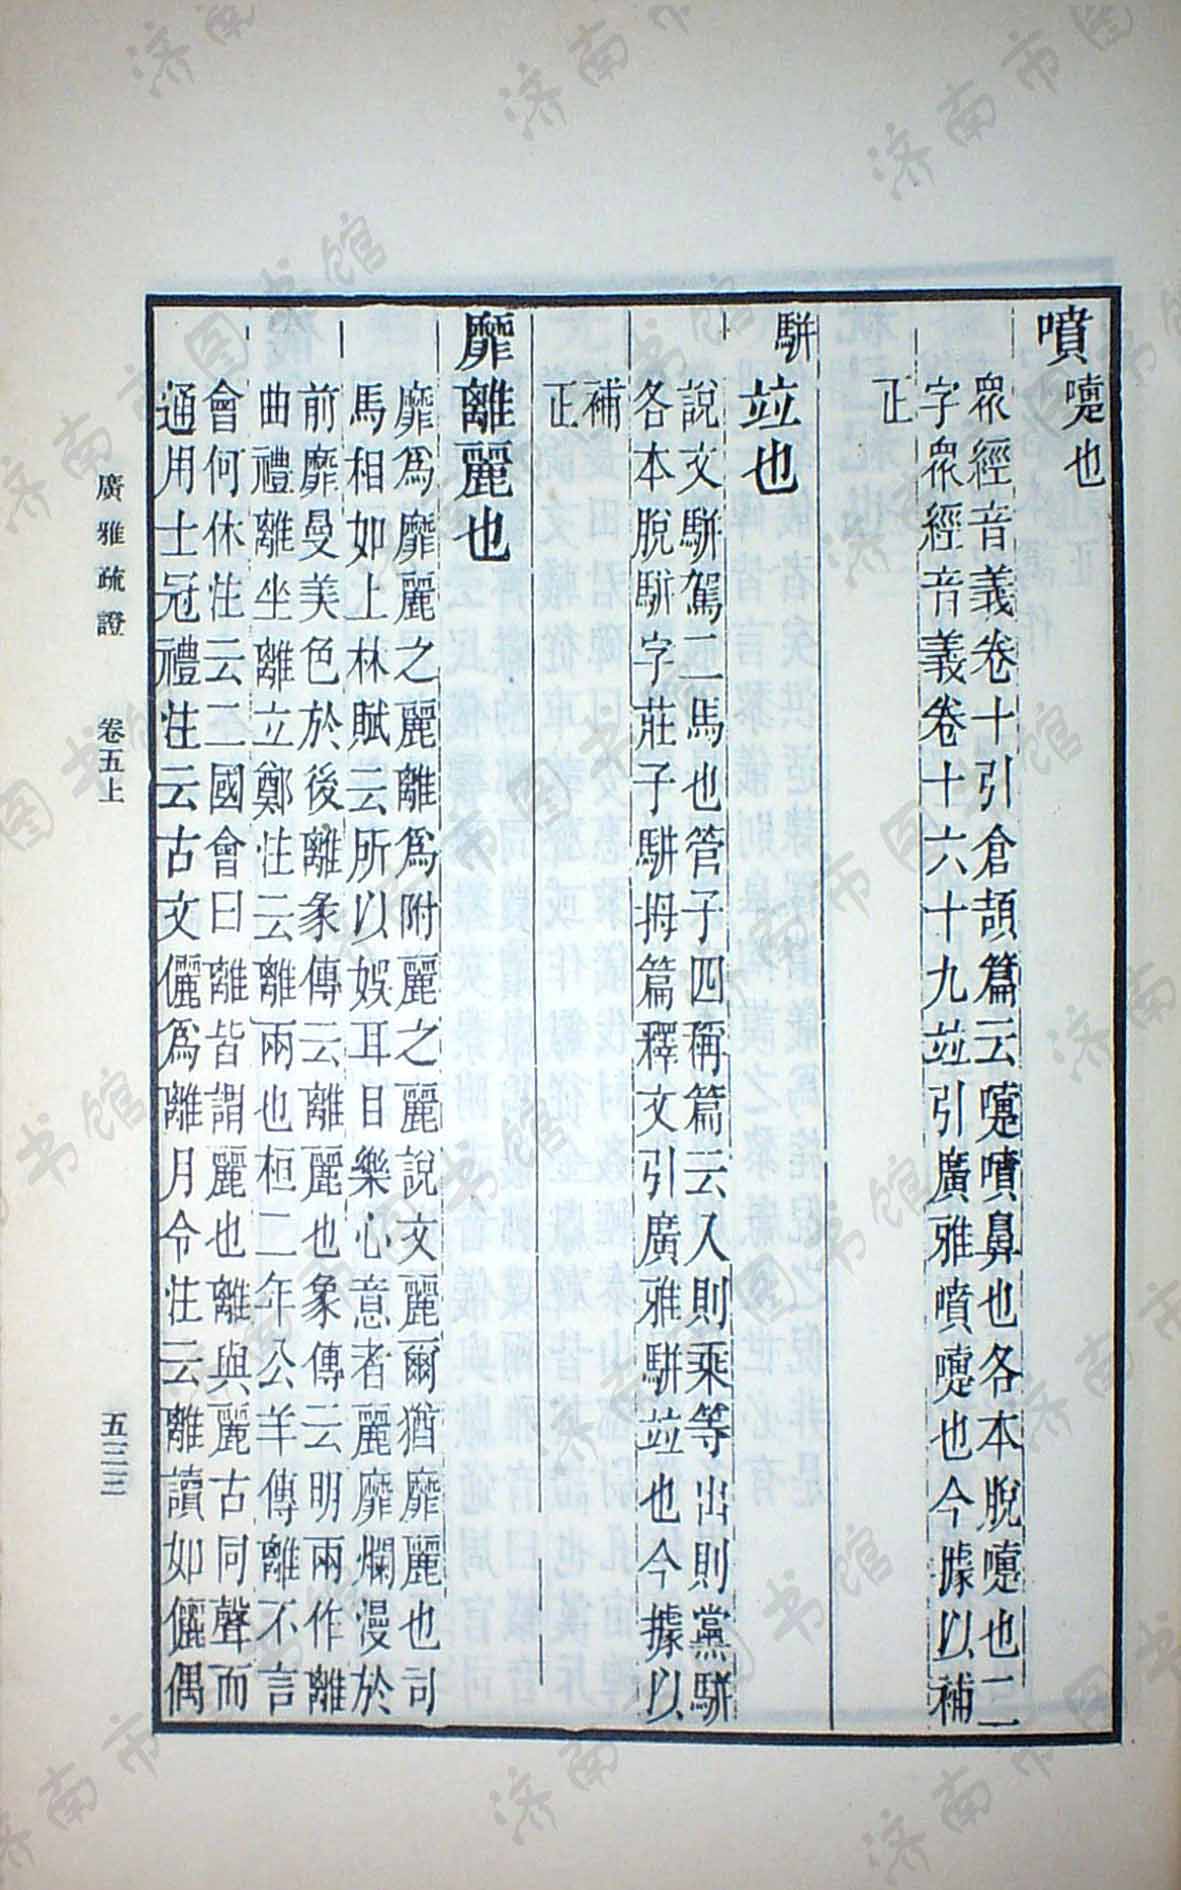 噴嚏也
衆經音義卷十引倉頡篇云嚏噴鼻也各本脫嚏也二
字衆經音義卷十六十九竝引廣雅噴嚏也今據以補
正
駢竝也
說文駢駕二馬也管子四稱篇云入則乘等出則黨駢
各本脫駢字莊子駢拇篇釋文引廣雅駢竝也今據以
補
正
靡離麗也
靡爲靡麗之麗離爲附麗之麗說文麗爾猶靡麗也司
馬相如上林賦云所以娛耳目樂心意者麗靡爛漫於
前靡曼美色於後離彖傳云離麗也象傳云明兩作離
曲禮離坐離立鄭注云離兩也桓二年公羊傳離不言
會何休注云二國會曰離皆謂麗也離與麗古同聲而
通用士冠禮注云古文儷爲離月令注云離讀如儷偶
廣雅疏證 卷五上
五三三
济南市图书馆